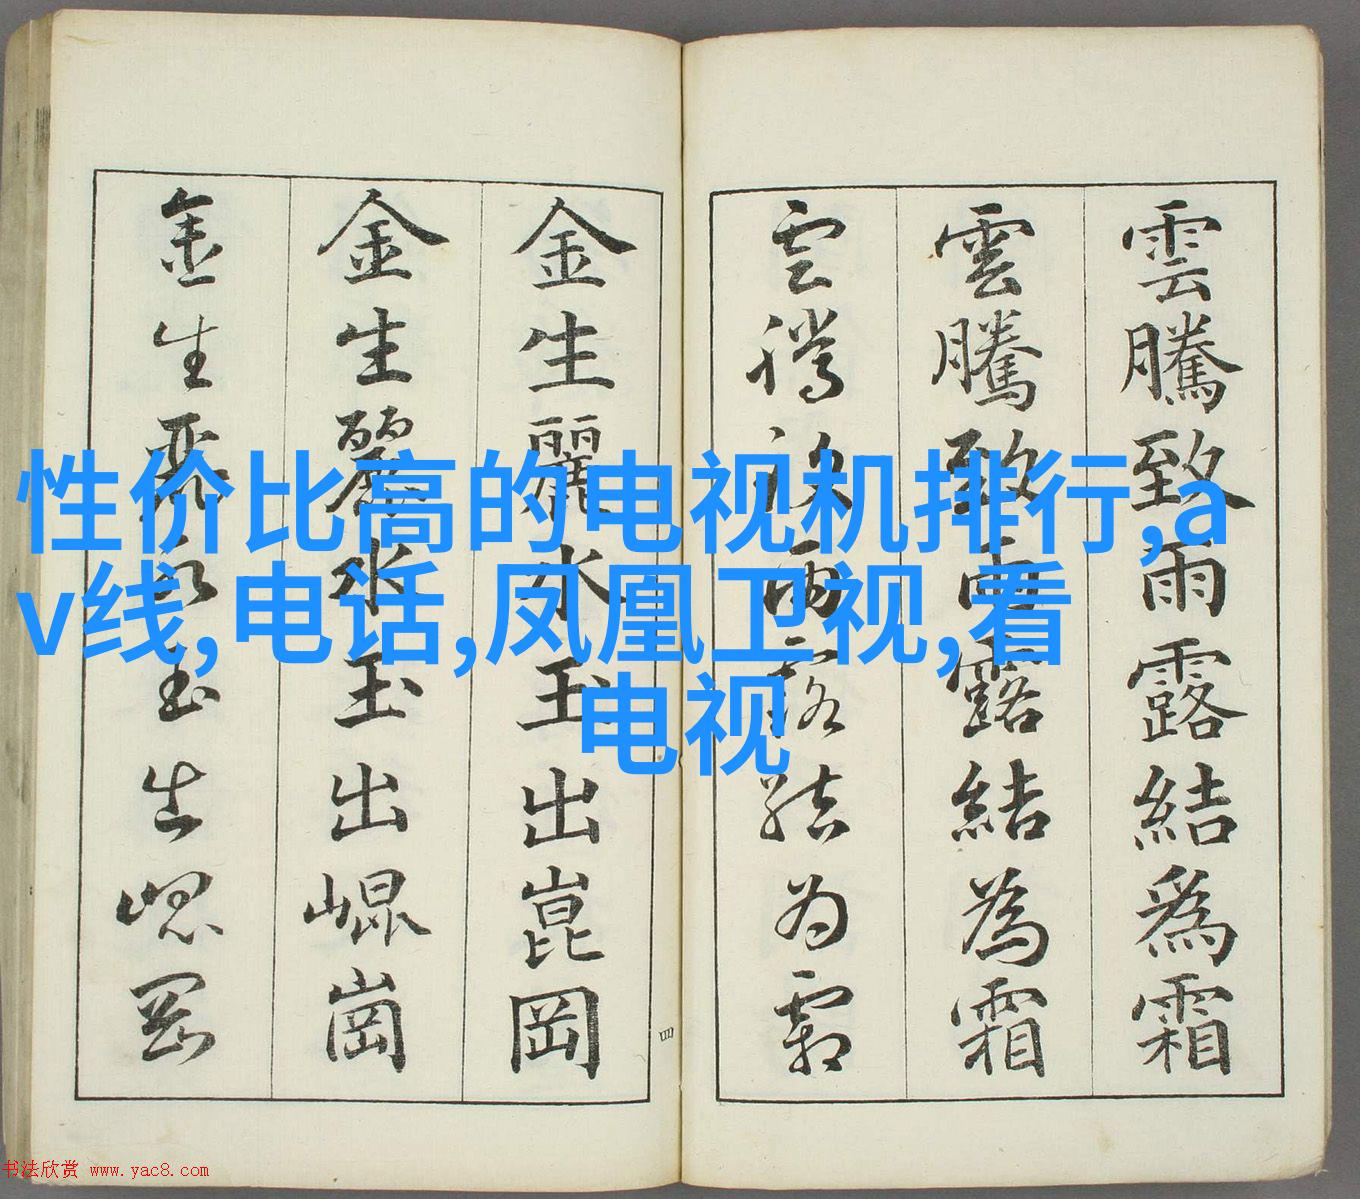 雲騰致雨露結為霜
雲騰致雨露結為霜
雲騰致雨露結為霜
金生麗水玉出崑岡
金生麗水玉出崐崗
金生麗水玉出崐岡
四
性价比高的电视机排行,a
v线,电话,凤凰卫视,看
电视
书法欣赏 www.yac8.com